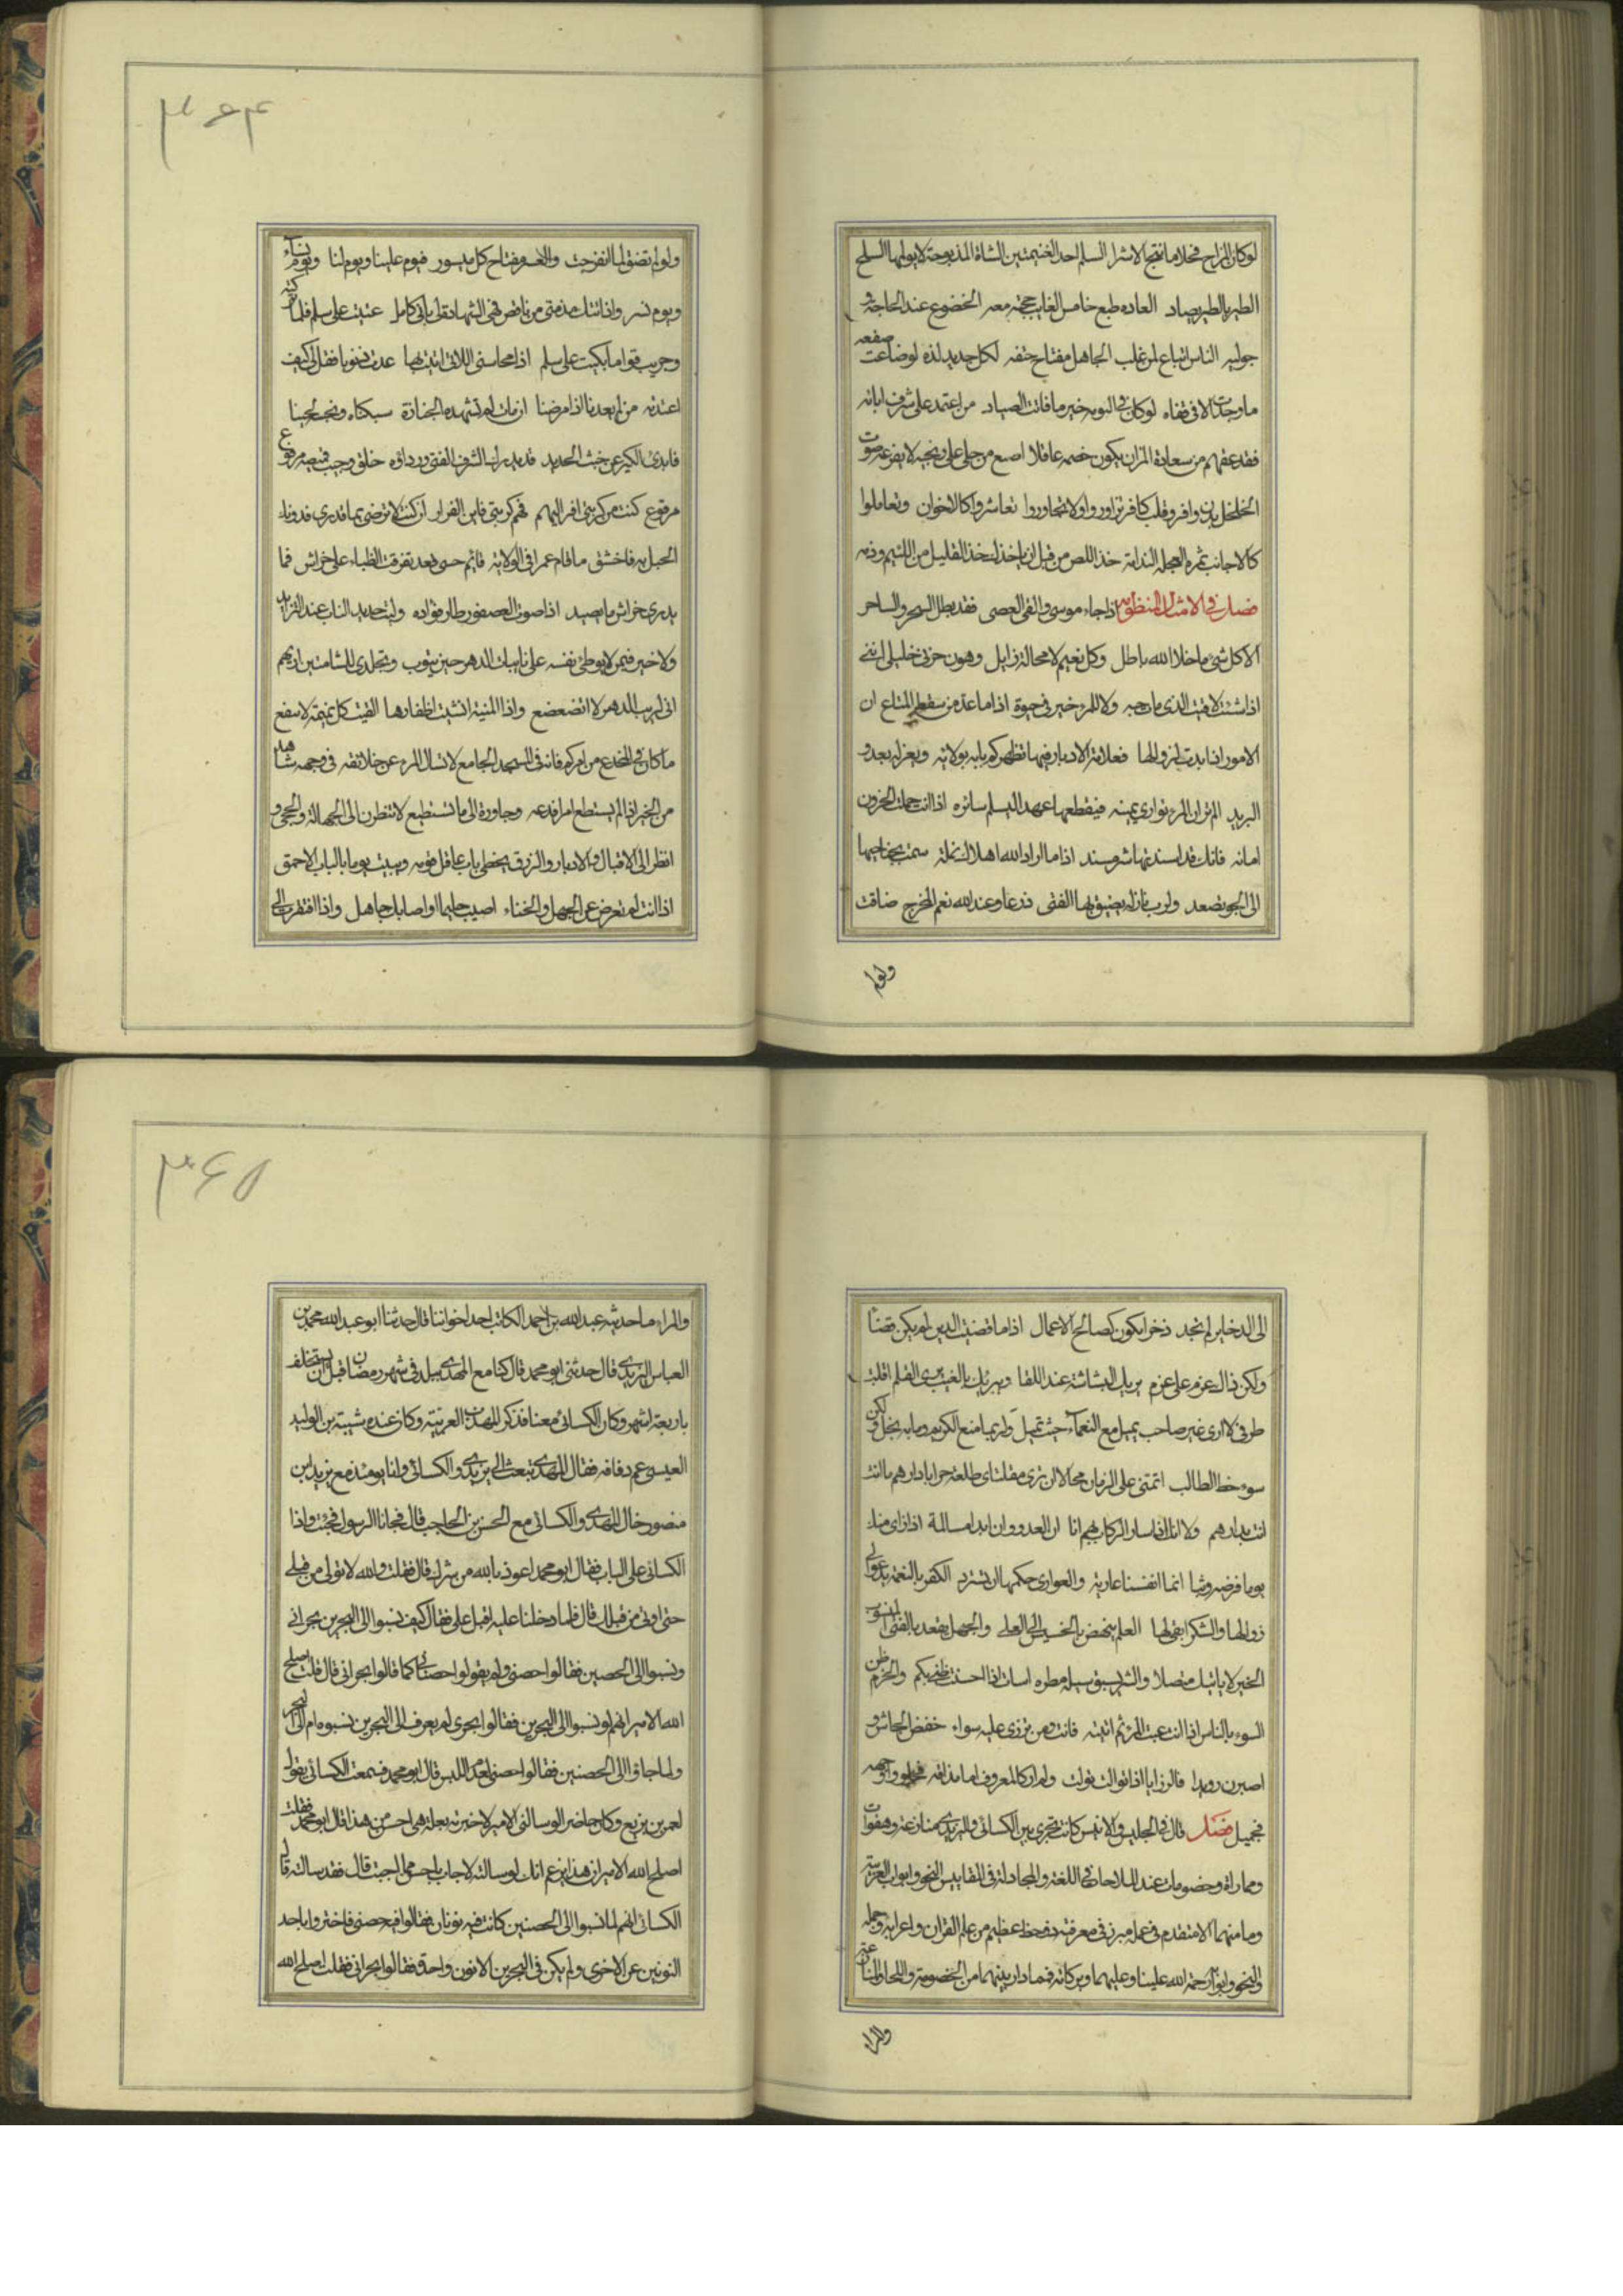 لوكان المزاح فحلا ما نتج الا شرا السلم احد الغنيمتين الشاة المذبوحة لا يولمها السلخ
الطير بالطير يصاد العاده طبع خامس الغايب حجته معه الخضوع عند الحاجة
جوليه الناس اتباع لمن غلب الجاهل مفتاح حتفه لكل جديد لذه لو ضاعت صفعه
ما وجدت الا فى قفاه لو كان فى البومه خير ما فاتت الصياد من اعتمد على شرف ابائه
فقد عقهم من سعادة المرء ان يكون خصمه عاقلا اصبع من حلى على لا يفزعه صوت
الخلخل بدن وافر وقلب كافر تزاوروا ولا تجاوروا تعاشروا كالاخوان وتعاملوا
كالاجانب ثمره العجله الندامة خذ اللص من قبل ان ياخذك خذ القليل من اللئيم وذمه
فصل فى الامثال المنظومه اذا جاء موسى والقى العصى فقد بطل السحر والساحر
الا كل شئ ما خلا الله باطل وكل نعيم لا محالة زايل وهون حزنى خليلى اننى
اذا شئت لاقيت الذى مات صاحبه ولا للمرء خير فى حيوة اذا ما عد من سقط المتاع ان
الامور اذا بدت لزوالها فعلامة الادبار فيها تظهر كم بابه بولاية وبعزله يعدو
البريد الم تر ان المرء تواري يمينه فيقطعها عمدا ليسلم سائره اذا انت حملت الخؤون
امانه فانك قد اسندتها شر مسند اذا ما اراد الله اهلاك نملة سمت بجناحيها
الى الجو تصعد ولرب نازلة يضيق بها الفتى ذرعا وعند الله نعم المخرج ضاقت
ولوام
٣٦٤
ولو لم تضق لما انفرجت والعسر مفتاح كل ميسور فيوم علينا ويوم لنا ويوم نساء
ويوم نسر واذا اتتك مذمتى من ناقص فهى الشهادة لى بانى كامل عتبت على سلم فلما تركته
وجربت قواما بكيت على سلم اذا محاسنى اللاتى اتيت بها عدت ذنوبا فقل لى كيف
اعتذر من لم يعدنا اذا مرضنا ان مات لم نشهد الجنازة سبكناه ونحسبه لجينا
فابدى الكير عن خبث الحديد قد يدرك الشرف الفتى ورداؤه خلق وجيب قميصه مرقوع
مرقوع كنت من كربتى افر اليهم فهم كربتى فاين الفرار ان كنت لا ترضى بما قد ترى فدونك
الحبل به فاخشق ما قام عمر فى الولاية قائم حسن بعد تفرقت الظباء على خراش فما
يدرى خراش ما يصيد اذا صوت العصفور طار فؤاده وليث حديد الناب عند الثرايد
ولا خير فيمن لا يوطن نفسه على نايبات الدهر حين ينوب وتجلدى للشامتين اريهم
انى لريب الدهر لا اتضعضع واذا المنية انشبت اظفارها الفيت كل تميمة لا تنفع
ما كان فى المخدع من امركم فانه فى المسجد الجامع لا تسال المرء عن خلائقه فى وجهه شاهد
من الخبر اذا لم يستطع امرا فدعه وجاوزه الى ما تستطيع لا تنظرن الى الجهالة والحجى و
انظر الى الاقبال والادبار والرزق يخطى باب عاقل قومه ويبيت بوابا بباب الاحمق
اذا انت لم تعرض عن الجهل والخناء اصبت حليما او اصابك جاهل واذا افتقرت
الى الذخاير لم تجد ذخرا يكون كصالح الاعمال اذا ما قضيت الدين لم يكن قضا
ولكن ذاك غرم على غرم يريك البشاشة عند اللقا ويبريك بالغيب برى القلم اقلب
طرفى لا ارى غير صاحب يميل مع النعماء حيث تميل ولربما منع الكريم وما به بخل ولكن
سوء حظ الطالب اتمنى على الزمان محالا ان ترى مقلتاى طلعة حر ما انت
انت بدارهم ولا انا ان سار الركاب هم انا ان العدو وان ابدا مسالمة اذا راى منك
يوما فرصه وثبا انما انفسنا عارية والعوارى حكمها ان تسترد الكفر بالنعمة يدعو الى
زوالها والشكر ابقى لها العلم ينهض بالخسيس الى العلى والجهل يقعد بالفتى المنسوب
الخير لا ياتيك متصلا والشر يسبق سيله مطره اسات اذا احسنت ظنى بكم والحزم ظن
السوء بالناس اذا انت عبت المرء ثم اتيته فانت ومن تزرى عليه سواء خفض الجاش و
اصبرن رويدا فالرزايا اذا توالت تولت ولم ار كالمعروف اما مذاقه فحلو واما وجهه
فجميل فصل قال فى الجليس والانيس كانت تجرى بين الكسائى واليزيدى منازعة وهفوات
ومماراة وخصومات عند الملاحاة فى اللغة والمجادلة فى المقاييس النحو وابواب العربية
وما منهما الا متقدم فى علمه مبرز فى معرفته ذو حظ عظيم من علم القران واعرابه وجمله
والنحو وابوابه رحمة الله علينا وعليهما وبركاته فمما دار بينهما من الخصومة واللحا والمنازعة
والمراء
٣٦٥
والمراء ما حدثنيه عبدالله بن احمد الكاتب احد اخواننا قال حدثنا ابو عبدالله محمد بن
العباس اليزيدى قال حدثنى ابو محمد قال كنا مع المهدى ببلد فى شهر رمضان قبل ان يستخلف
باربعة اشهر وكان الكسائى معنا فذكر المهدى العربية وكان عنده شيبة بن الوليد
العبسى عم دفافه فقال المهدى تبعث الى يزيدى والكسائى وانا يومئذ مع يزيد ابن
منصور خال المهدى والكسائى مع الحسن بن الحاجب قال فجانا الرسول فجئت واذا
الكسائى على الباب فقال ابو محمد اعوذ بالله من شرك قال فقلت والله لا توتى من قبلى
حتى اوتى من قبلك قال فلما دخلنا عليه اقبل على فقال كيف نسبوا الى البحرين بحرانى
ونسبوا الى الحصنين فقالوا حصنى ولم يقولوا حصنانى كما قالوا بحرانى قال قلت اصلح
الله الامير انهم لو نسبوا الى البحرين فقالوا بحرى لم يعرف الى البحرين نسبوه ام الى البحر
ولما جاؤا الى الحصنين فقالوا حصنى لعدم اللبس قال ابو محمد فسمعت الكسائى يقول
لعمر بن بزيع وكان حاضرا لو سالنى الامير لاخبرته بعلة هى احسن من هذا قال ابو محمد فقلت
اصلح الله الامير ان هذا يزعم انك لو سالته لاجاب باحسن مما اجبت قال فقد سالته قال
الكسائى انهم لما نسبوا الى الحصنين كانت فيه نونان فقالوا فيه حصنى فاختزوا باحد
النونين عن الاخرى ولم يكن فى البحرين الا نون واحدة فقالوا بحرانى فقلت اصلح الله